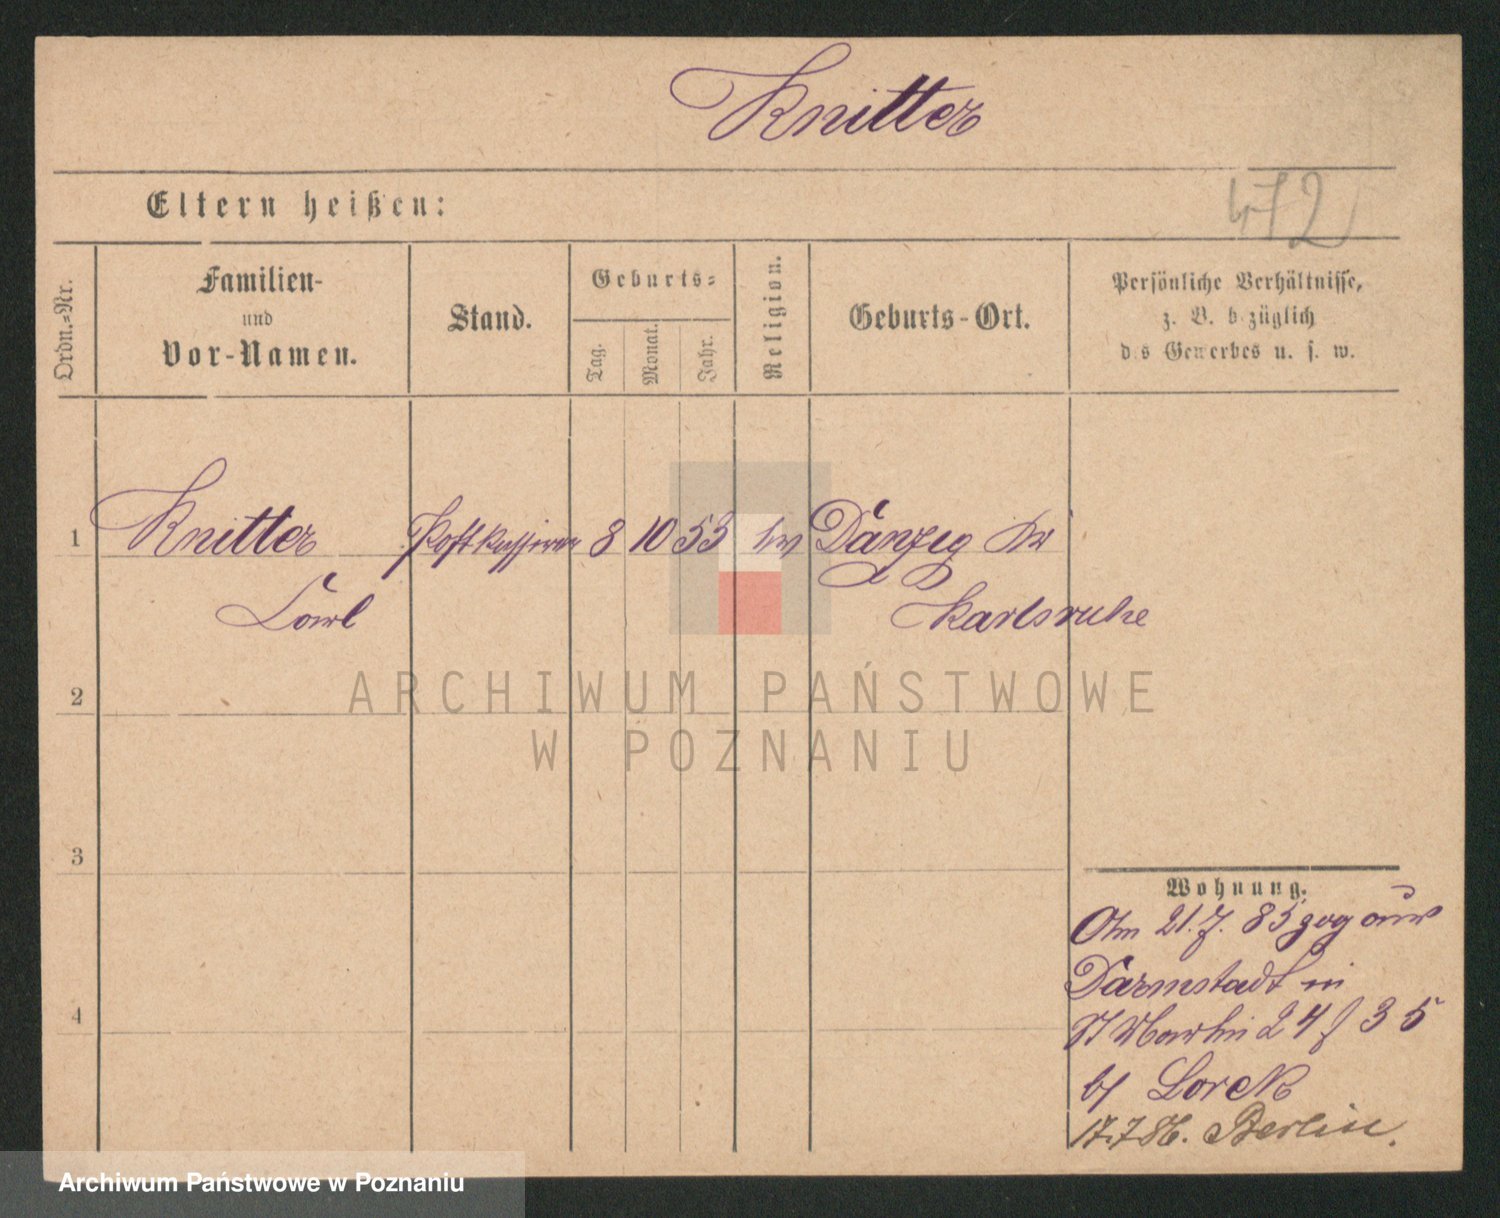 Knitter
Eltern heißen:
472
Ordn.-Nr.
Familien-
und
Vor-Namen.
Stand.
Geburts-
Tag.
Monat.
Jahr.
Religion.
Geburts-Ort.
Persönliche Verhältnisse,
z. B. bezüglich
des Gewerbes u. s. w.
1 Knitter Postkassirer 8 10 53 Danzig Kr
Carl Karlsruhe
2
ARCHIWUM PAŃSTWOWE
W POZNANIU
3
Wohnung.
Am 21.7.85 zog aus
Darmstadt in
St Martin 24 f 35
b/ Lorck
4
17.7 86. Berlin.
Archiwum Państwowe w Poznaniu